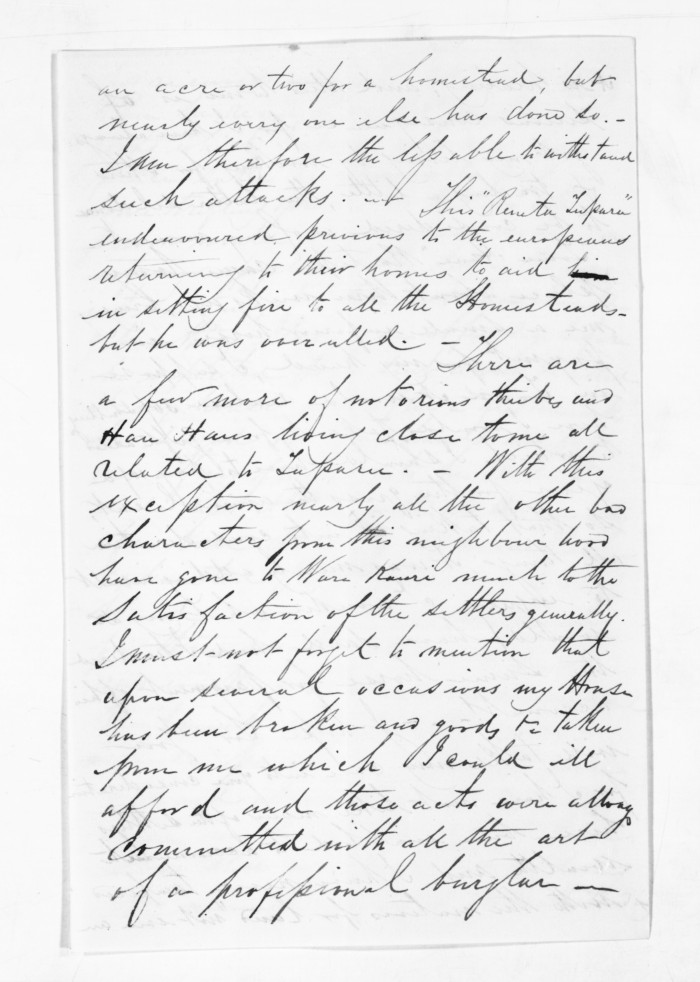 an acre or two for a homestead, but
nearly every one else has done so. -
I am therefore the less able to withstand
such attacks. - This "Renata Tupara"
endeavoured previous to the europeans
returning to their homes to aid
in setting fire to all the Homesteads -
but he was overrulled. - There are
a few more of notorious thieves and
Hau Haus living close to me all
related to Tupara. - With this
exception nearly all the other bad
characters from this neighbour hood
have gone to Ware Kauri much to the
satisfaction of the settlers generally.
I must not forget to mention that
upon several occasions my House
has been broken and goods &c taken
from me which I could ill
afford and those acts were allways
committed with all the art
of a professional burglar -